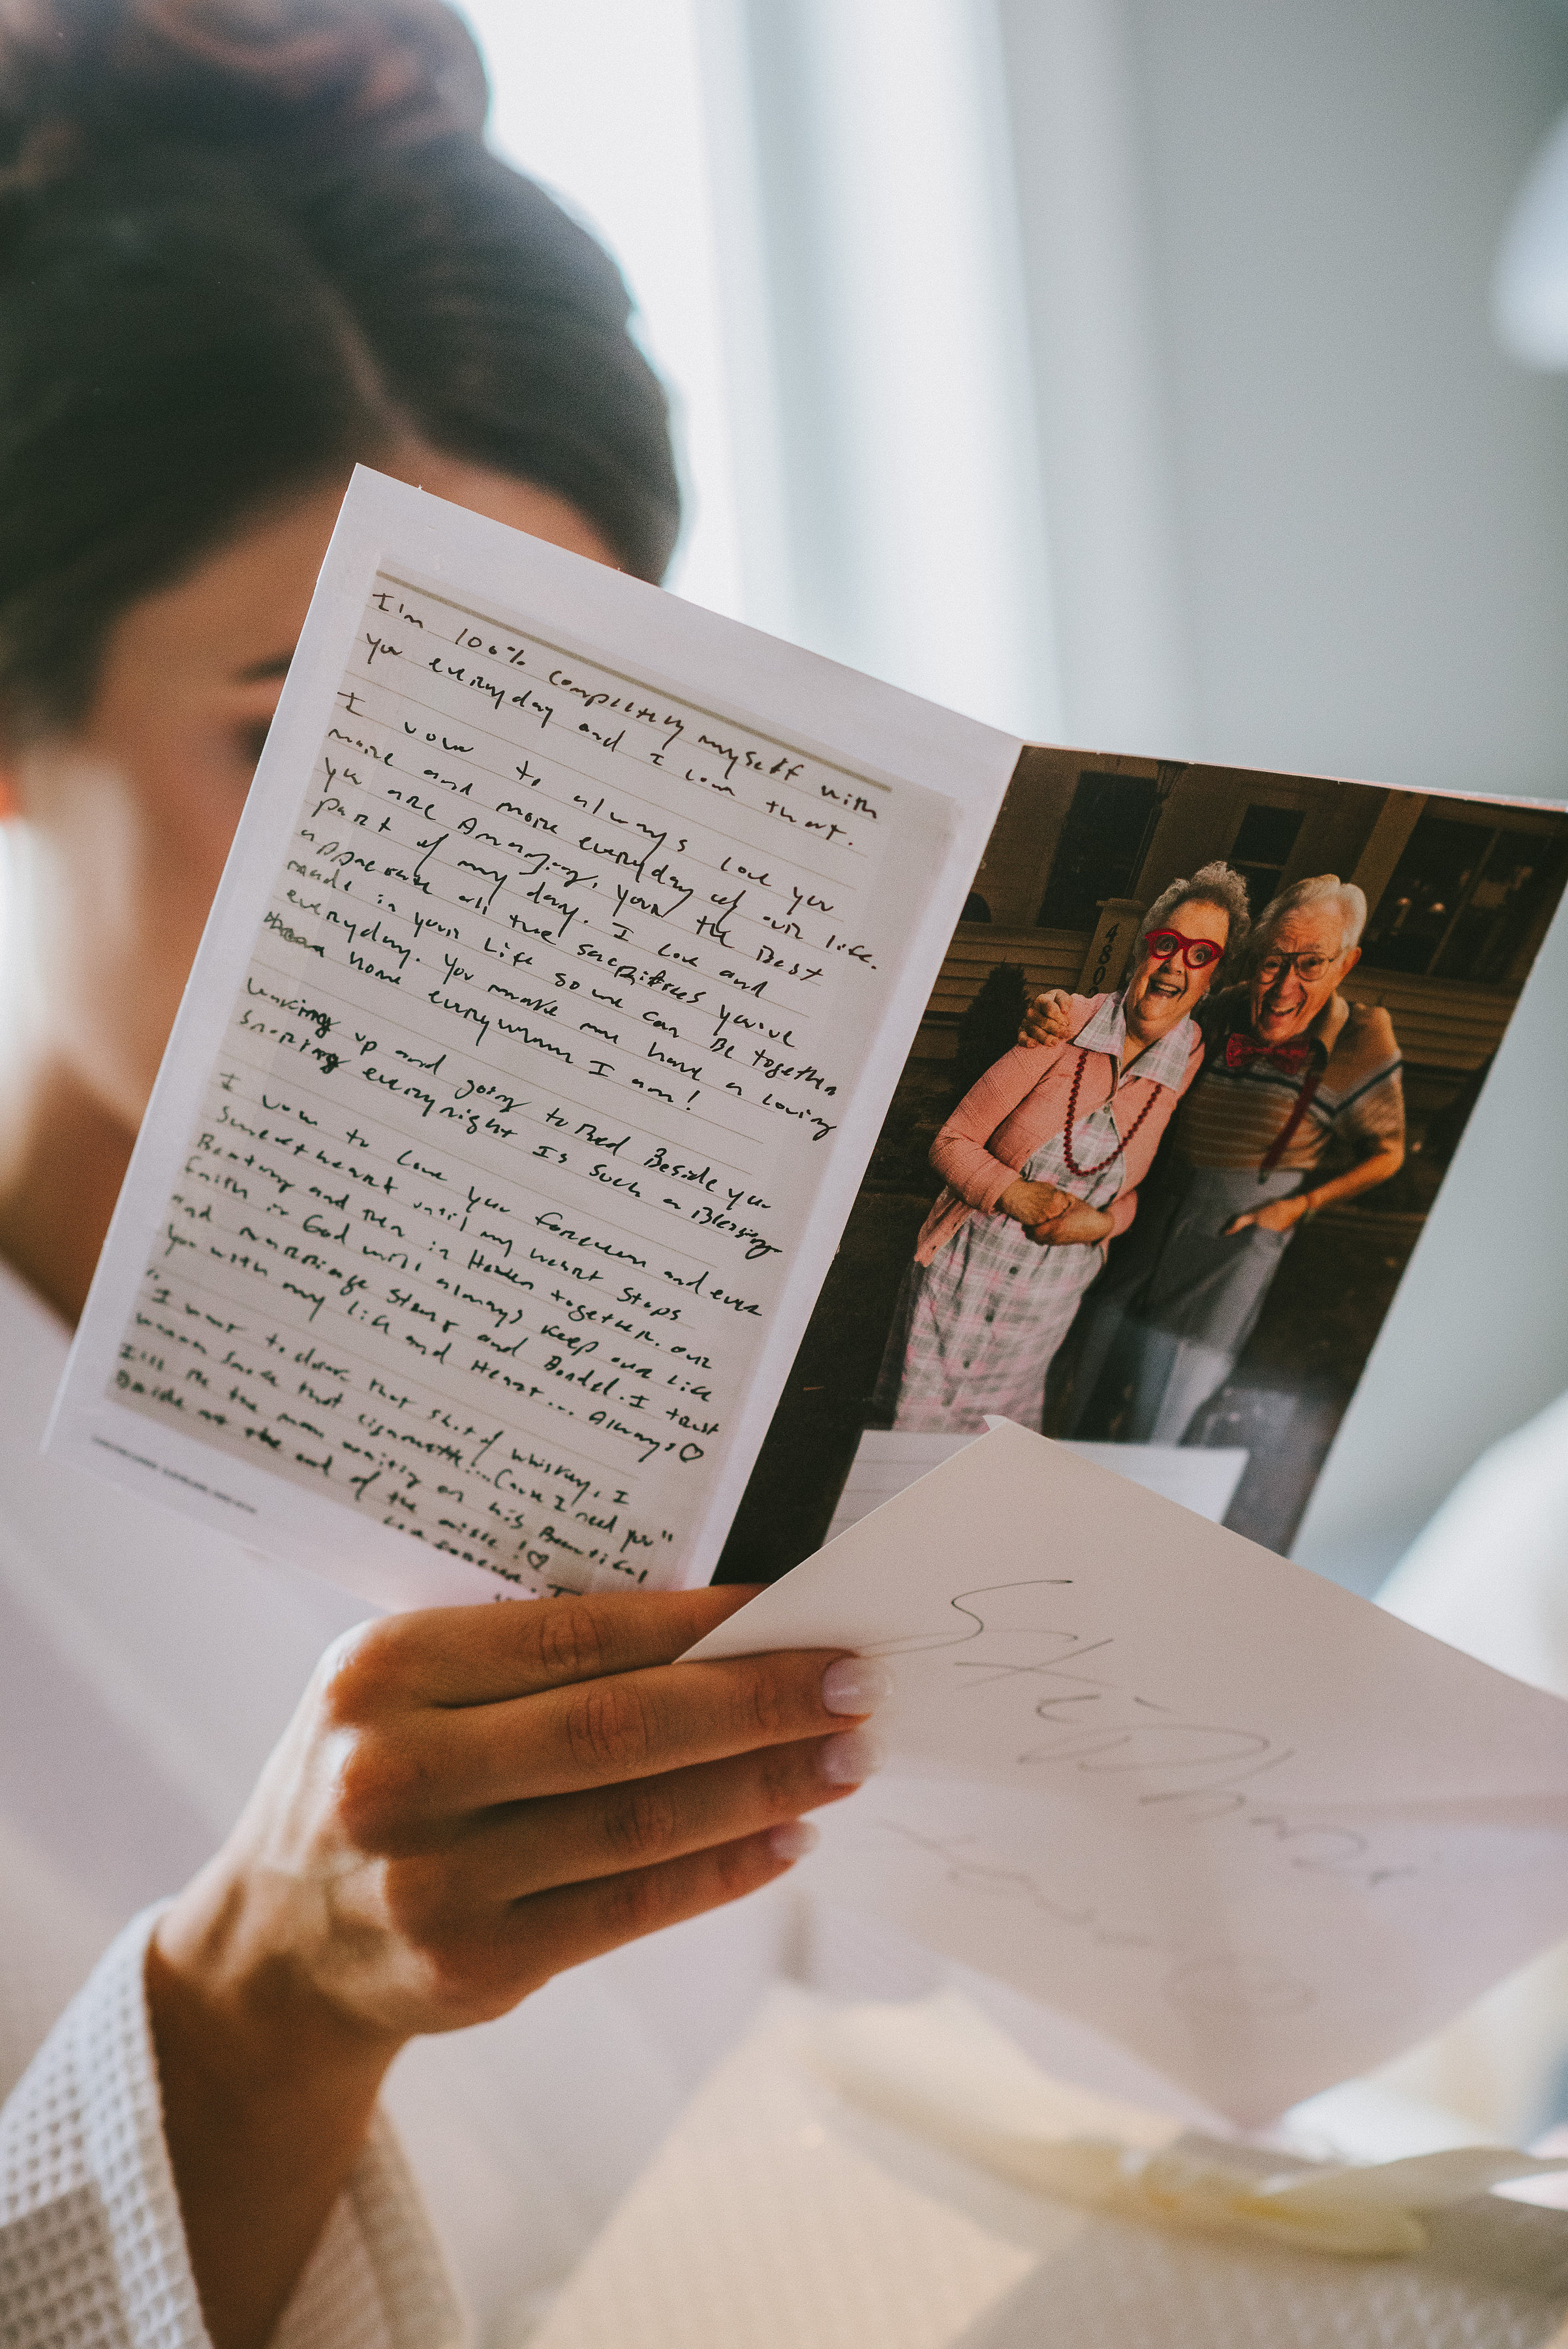 I'm 100% completely myself with
you everyday and I love that.
I vow to always love you
more and more everyday of our life.
You are Amazing, your the Best
part of my day. I love and
appreciate all the sacrifices you've
made in your life so we can Be together
everyday. You make me have a loving
home everywhere I am!
Waking up and going to Bed Beside you
snoring everynight Is such a Blessing
I vow to love you forever and ever
Sweetheart until my heart stops
Beating and then in Heaven together. our
faith in God will always keep our life
and marriage strong and Bonded. I trust
you with my life and Heart... Always♡
"I want to chase that shot of whiskey, I
wanna smoke that cigarette... Cause I need you"
I'll be the man waiting on his Beautiful
Bride at the end of the aisle!♡
480